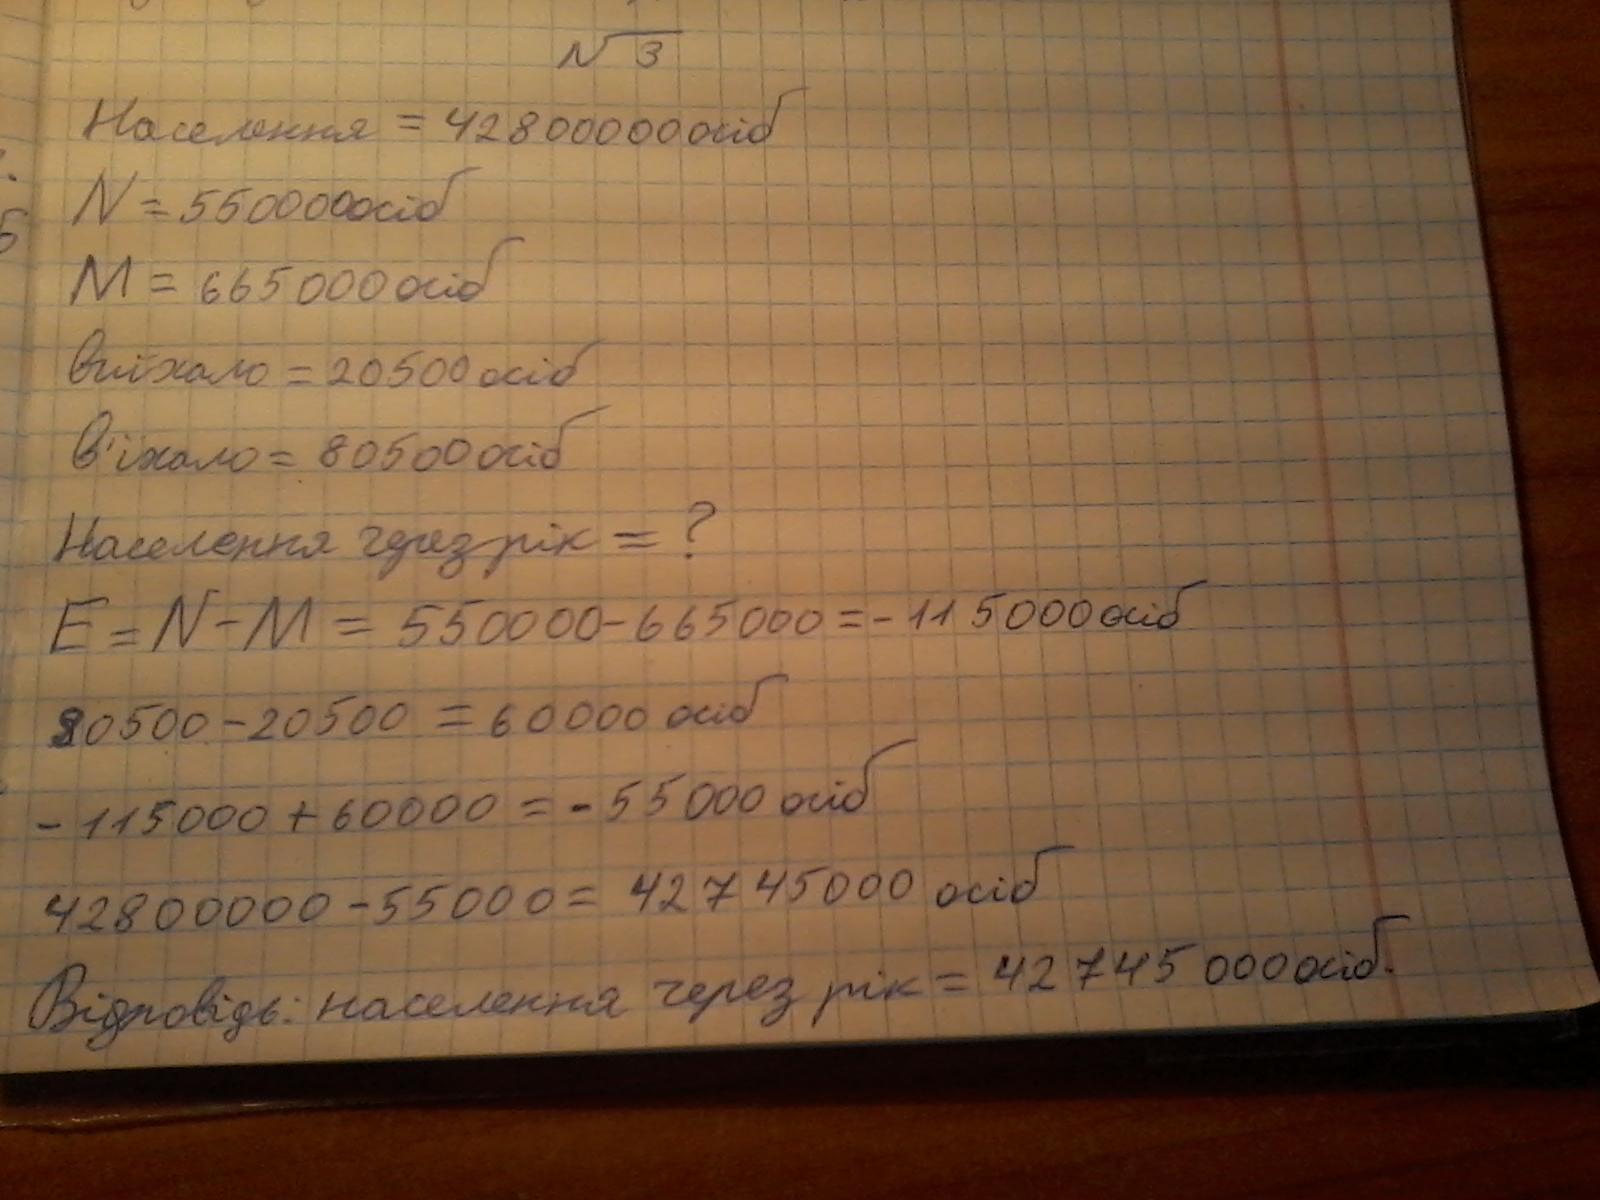 №3
Населення = 42800000 осіб
N = 550000 осіб
M = 665000 осіб
Виїхало = 20500 осіб
В'їхало = 80500 осіб
Населення через рік = ?
E = N - M = 550000 - 665000 = - 115000 осіб
80500 - 20500 = 60000 осіб
- 115000 + 60000 = - 55000 осіб
42800000 - 55000 = 42745000 осіб
Відповідь: населення через рік = 42745000 осіб.